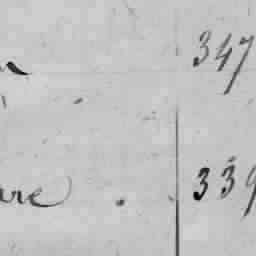 347
are . 339